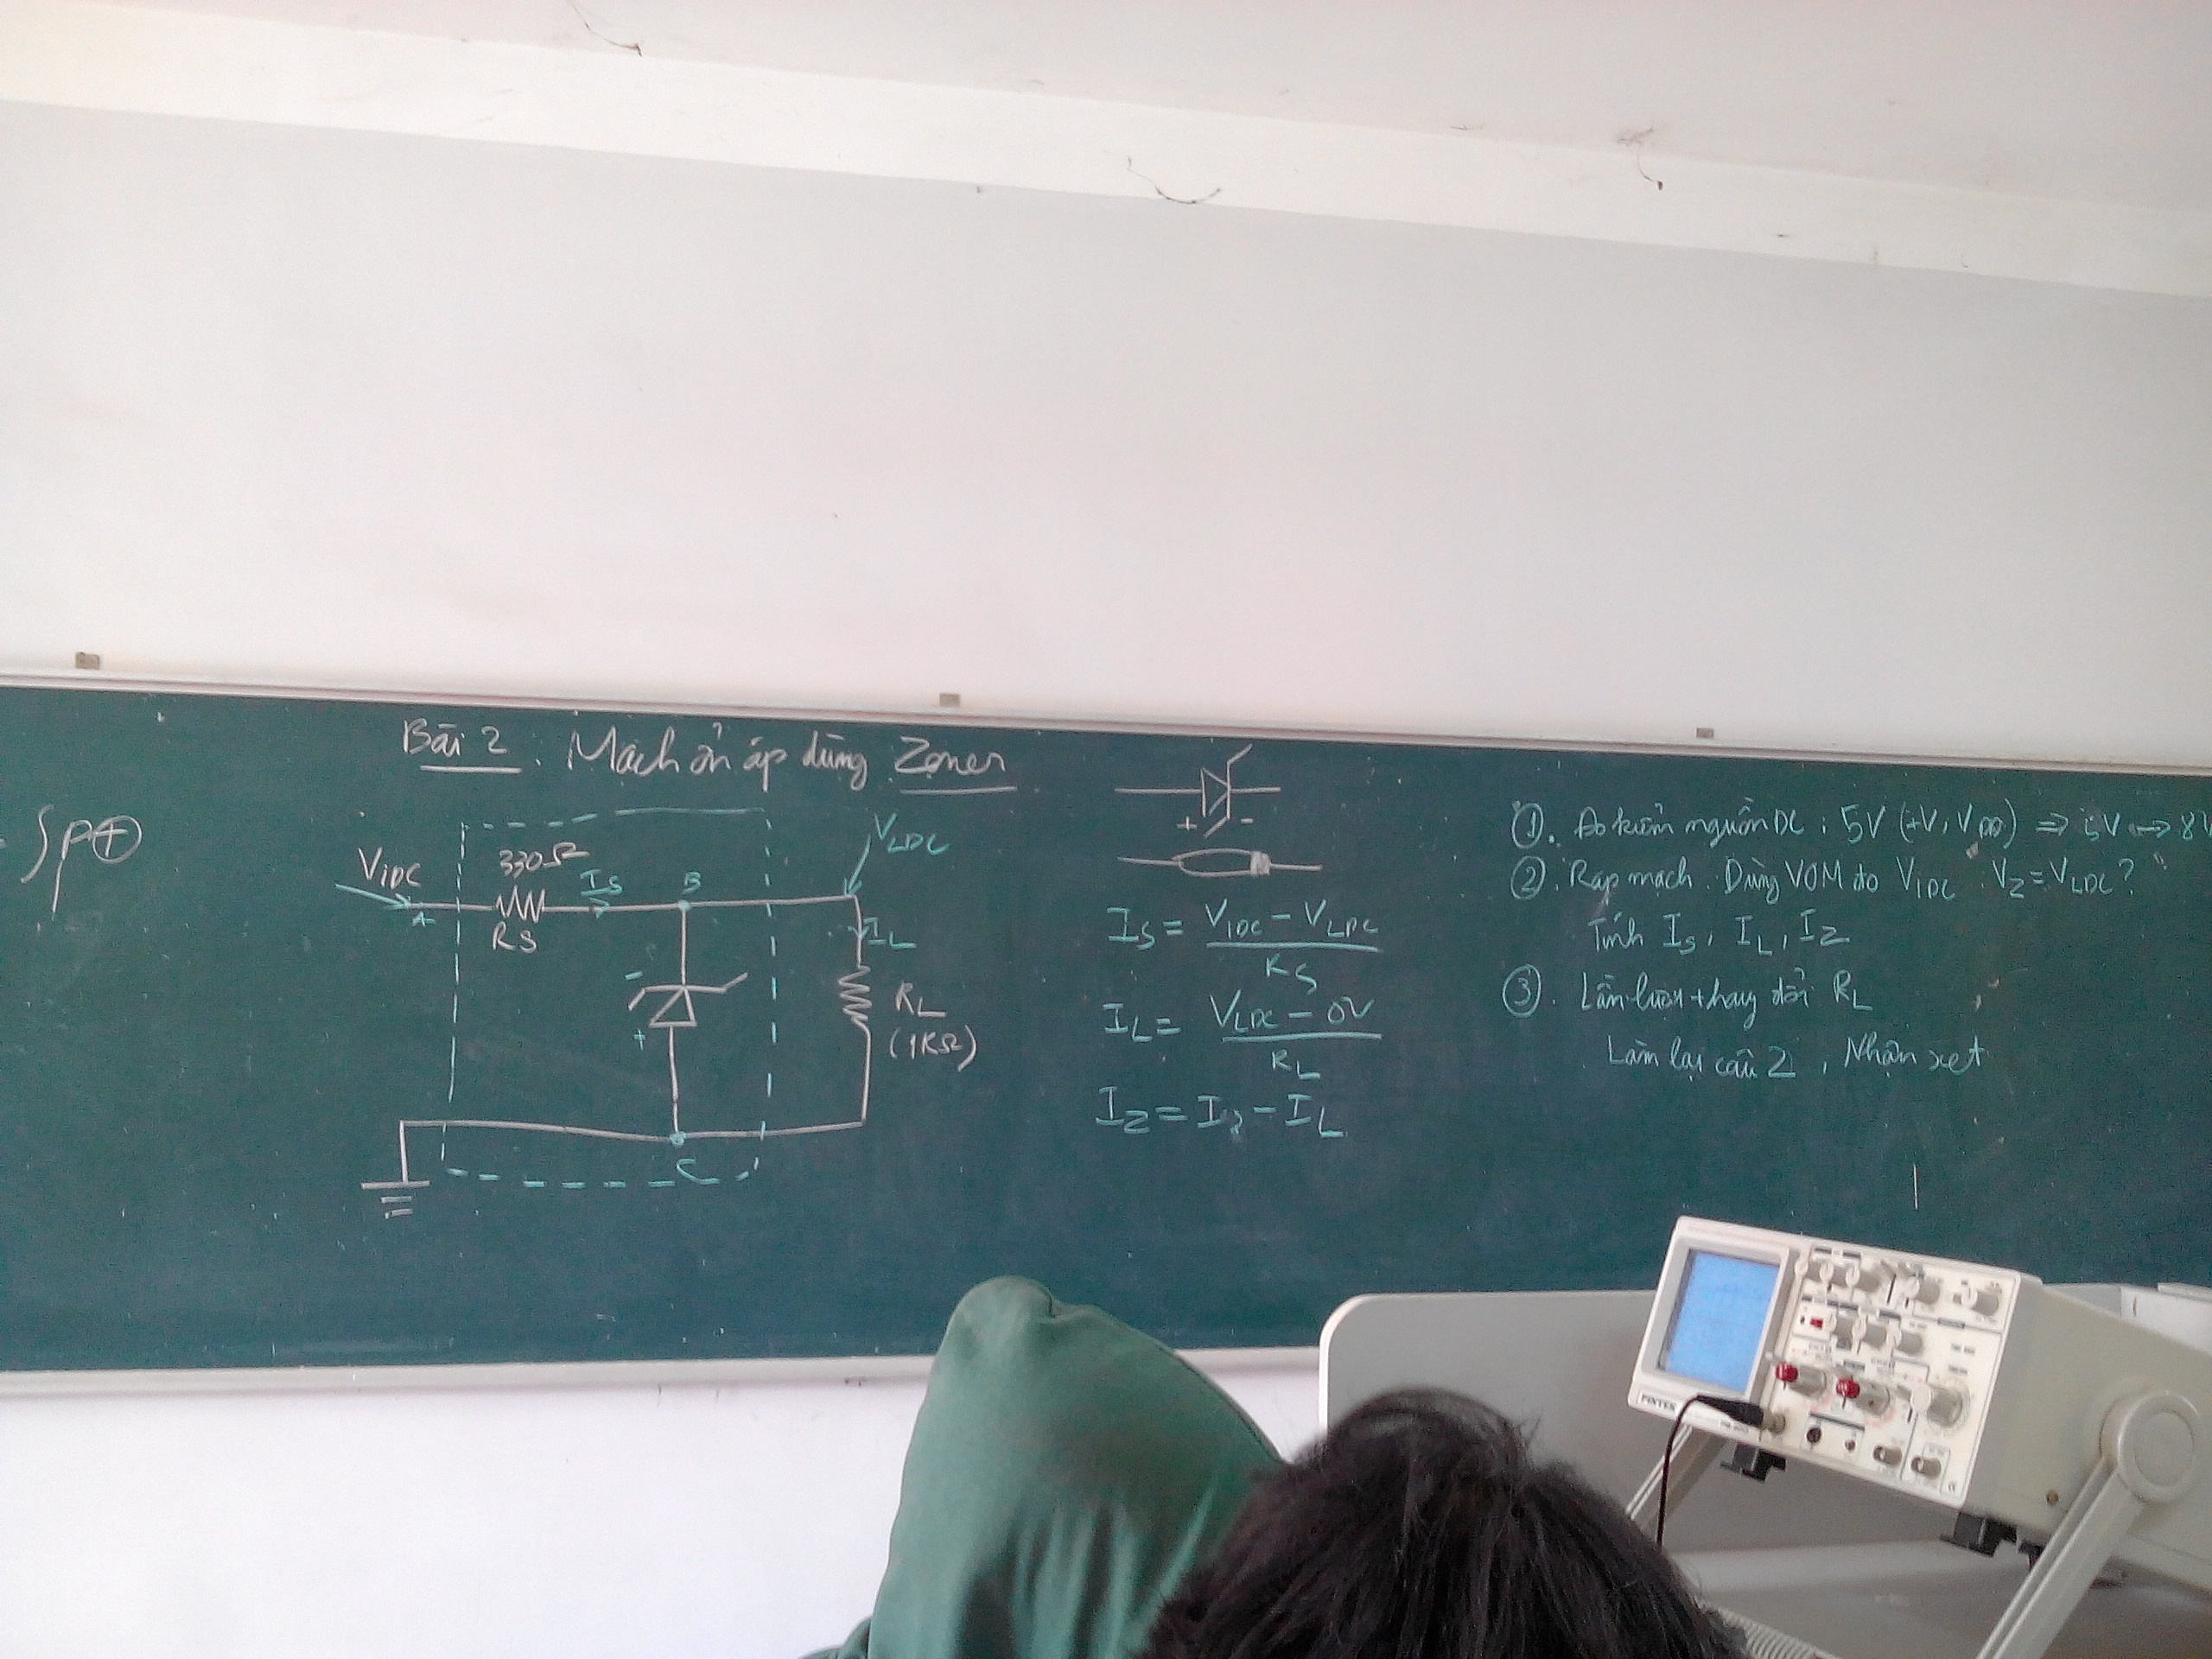 Bài 2. Mạch ổn áp dùng Zener
∫P⊕
VIDC
330Ω
IS
B
VLDC
A
RS
IL
-
+
RL
(1KΩ)
C
+ -
IS = (VIDC - VLDC) / RS
IL = (VLDC - 0V) / RL
IZ = IS - IL
①. Đo kiểm nguồn DC: 5V (+V, VDD) ⇒ 5V ↔ 8V
②. Ráp mạch. Dùng VOM đo VIDC. VZ = VLDC?
Tính IS, IL, IZ
③. Lần lượt thay đổi RL
Làm lại câu 2, Nhận xét
PINTEK